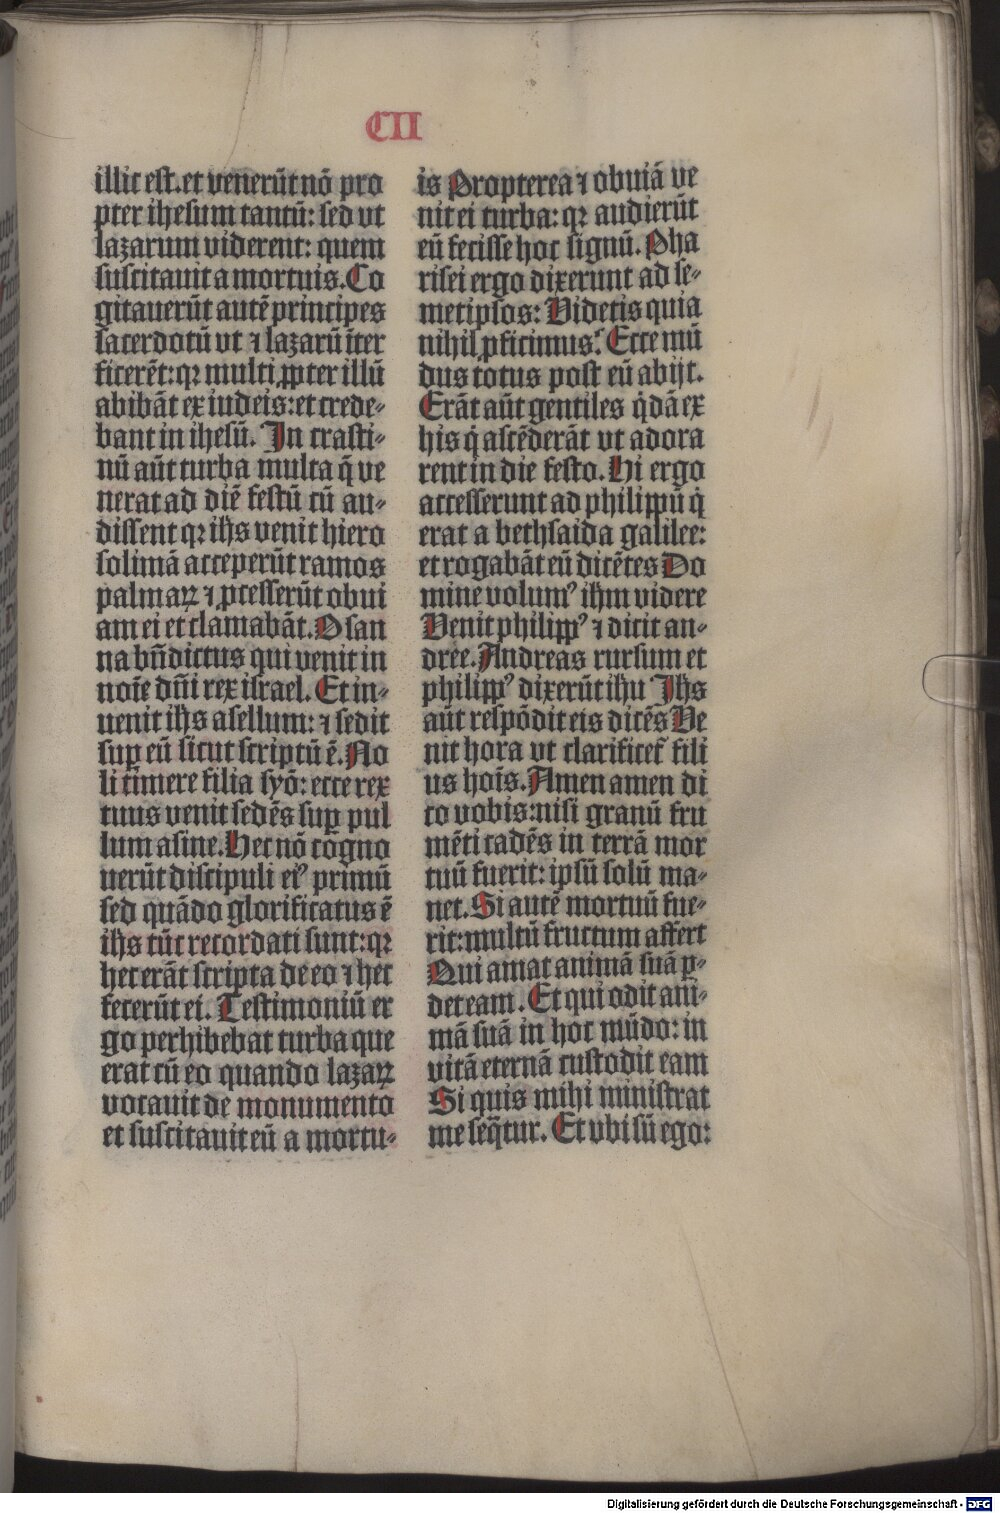 CII
illic est. et venerūt nō pro
pter ihesum tantū: sed vt
lazarum viderent: quem
suscitauit a mortuis. Co
gitauerūt autē principes
sacerdotū vt ⁊ lazarū īter
ficerēt: qꝛ multi ꝓpter illū
abibāt ex iudeis: et crede⸗
bant in ihesū. In crasti⸗
nū aūt turba multa q̄ ve
nerat ad diē festū cū au⸗
dissent qꝛ ihs venit hiero
solimā acceperūt ramos
palmaꝝ ⁊ ꝓcesserūt obui
am ei et clamabāt. Osan
na bn̄dictus qui venit in
noīe dn̄i rex israel. Et in⸗
uenit ihs asellum: ⁊ sedit
suꝑ eū sicut scriptū ē. No
li timere filia syō: ecce rex
tuus venit sedēs suꝑ pul
lum asine. Hec nō cogno
uerūt discipuli eiꝰ primū
sed quādo glorificatus ē
ihs tūc recordati sunt: qꝛ
hec erāt scripta de eo ⁊ hec
fecerūt ei. Testimoniū er
go perhibebat turba que
erat cū eo quando lazaꝝ
vocauit de monumento
et suscitauit eū a mortu⸗
is Propterea ⁊ obuiā ve
nit ei turba: qꝛ audierūt
eū fecisse hoc signū. Pha
risei ergo dixerunt ad se⸗
metipsos: Videtis quia
nihil ꝓficimus? Ecce mū
dus totus post eū abijt.
Erāt aūt gentiles q̇dā ex
his q̇ ascēderāt vt adora
rent in die festo. Hi ergo
accesserunt ad philippū q̇
erat a bethsaida galilee:
et rogabāt eū dicētes Do
mine volumꝰ ihm videre
Venit philippꝰ ⁊ dicit an⸗
dree. Andreas rursum et
philippꝰ dixerūt ihu Ihs
aūt respōdit eis dicēs Ve
nit hora vt clarificet᷑ fili
us hoīs. Amen amen di
co vobis: nisi granū fru
mēti cadēs in terrā mor
tuū fuerit: ipsū solū ma⸗
net. Si autē mortuū fue⸗
rit: multū fructum affert
Qui amat animā suā ꝑ⸗
det eam. Et qui odit ani⸗
mā suā in hoc mūdo: in
vitā eternā custodit eam
Si quis mihi ministrat
me seq̄tur. Et vbi sū ego:
Digitalisierung gefördert durch die Deutsche Forschungsgemeinschaft - DFG